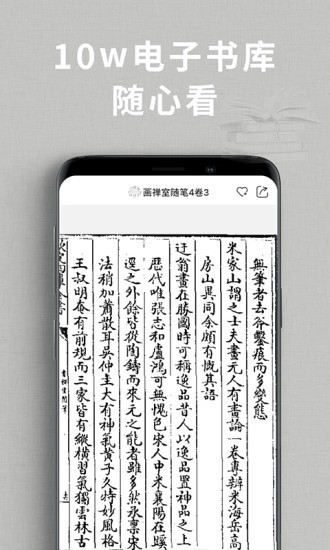 10w电子书库
随心看
画禅室随笔4卷3
無筆者去斧鑿痕而多變態
米家山謂之士夫畫元人有畫論一卷專辨米海岳高
房山異同余頗有慨其語
迂翁畫在勝國時可稱逸品昔人以逸品置神品之上
歷代唯張志和盧鴻可無愧色宋人中米襄陽在蹊
逕之外餘皆從陶鑄而來元之能者雖多然承稟宋
法稍加蕭散耳吳仲圭大有神氣黃子久特妙風格
王叔明奄有前規而三家皆有縱橫習氣獨雲林古